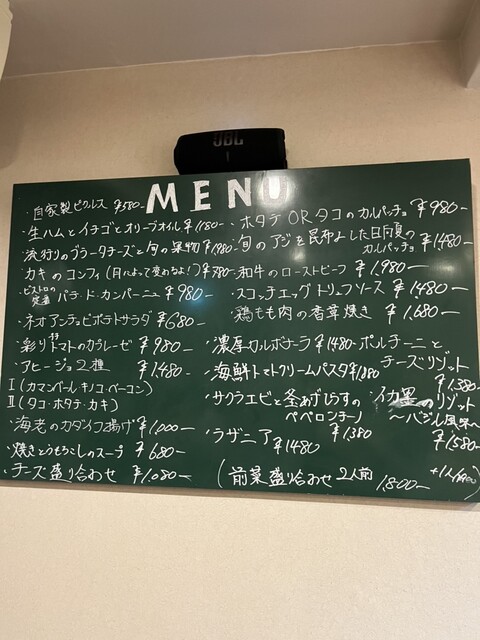 JBL
MENU
・自家製ピクルス ¥580-
・生ハムとイチゴとオリーブオイル ¥1180-
・流行りのブラータチーズと旬の果物 ¥1980-
・カキのコンフィ(日によって変わるよ!) ¥780-
ビストロの定番 パテ・ド・カンパーニュ ¥980-
・ネオアンチョビポテトサラダ ¥680-
・彩りトマトのカプレーゼ ¥980-
・アヒージョ2種 ¥1,480-
I (カマンベール キノコ・ベーコン)
II (タコ・ホタテ・カキ)
・海老のカダイフ揚げ ¥1,000-
・焼きとうもろこしのスープ ¥680-
・チーズ盛り合わせ ¥1,080-
・ホタテ OR タコのカルパッチョ ¥980-
・旬のアジを昆布〆した
カルパッチョ ¥1480-
・和牛のローストビーフ ¥1,980-
・スコッチエッグ トリュフソース ¥1480-
・鶏もも肉の香草焼き ¥1,680-
・濃厚カルボナーラ ¥1480-
・海鮮トマトクリームパスタ
・サクラエビと釜あげしらすの
ペペロンチーノ ¥1380
・ラザニア ¥1480
・ポルチーニと
チーズリゾット ¥1,380-
・イカ墨のリゾット
〜バジル風味〜 ¥1,580-
(前菜盛り合わせ 2人前 1,800-